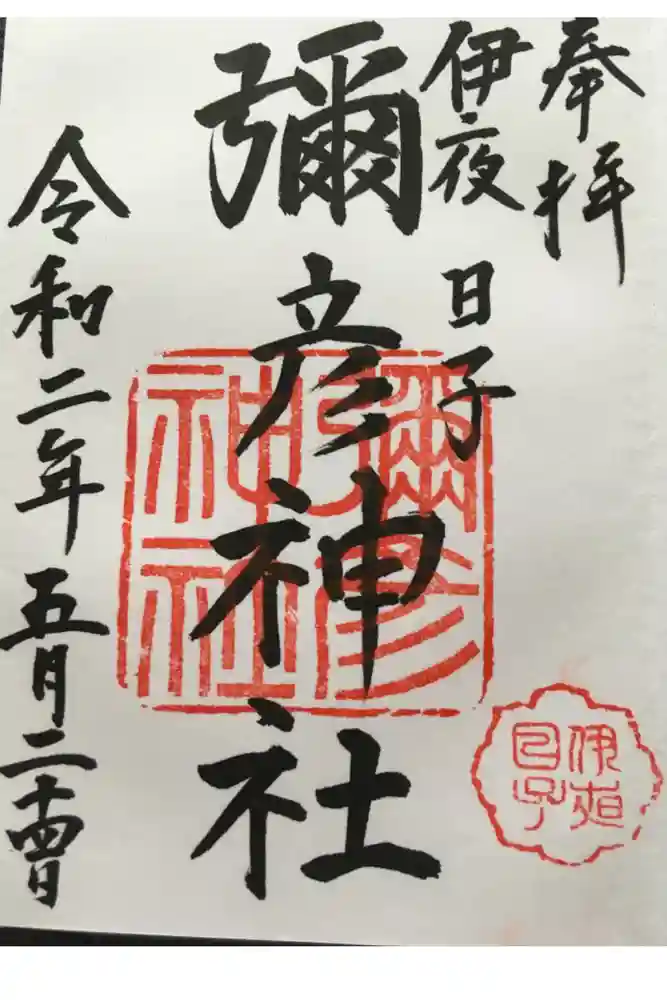 奉拝
伊夜日子
彌彦神社
令和二年五月二十四日
彌彦
神社
伊夜
日子